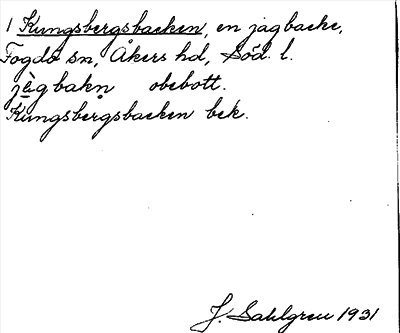 1 Kungsbergsbacken, en jagbacke,
Fogdö sn, Åkers hd, Söd. l.
jègbakn obebott.
Kungsbergsbacken bek.
J. Sahlgren 1931